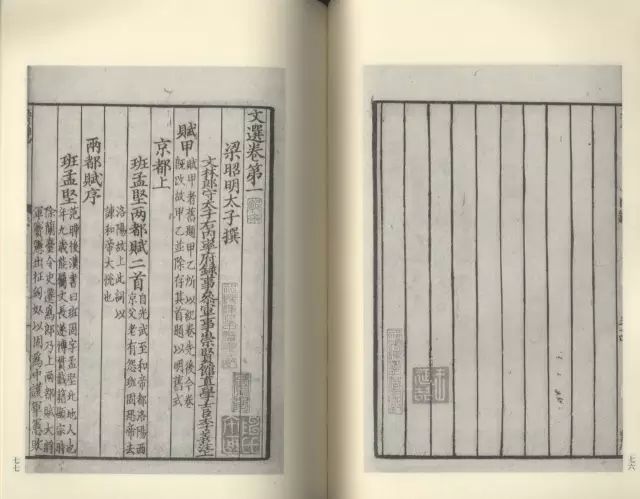 文選卷第一
梁昭明太子撰
文林郎守太子右內率府錄事參軍事崇賢館直學士臣李善注
賦甲 賦甲者舊題甲乙所以紀卷先後今卷
既改故甲乙並除存其首題以明舊式
京都上
班孟堅兩都賦二首 自光武至和帝都洛陽西
京父老有怨班固恐帝去
洛陽故上此詞以
諫和帝大悅也
兩都賦序
班孟堅 范曄後漢書曰班固字孟堅北地人也
年九歲能屬文長遂博貫載籍顯宗時
除蘭臺令史遷為郎乃上兩都賦大將
軍竇憲出征匈奴以固為中護軍憲敗
七六
七七